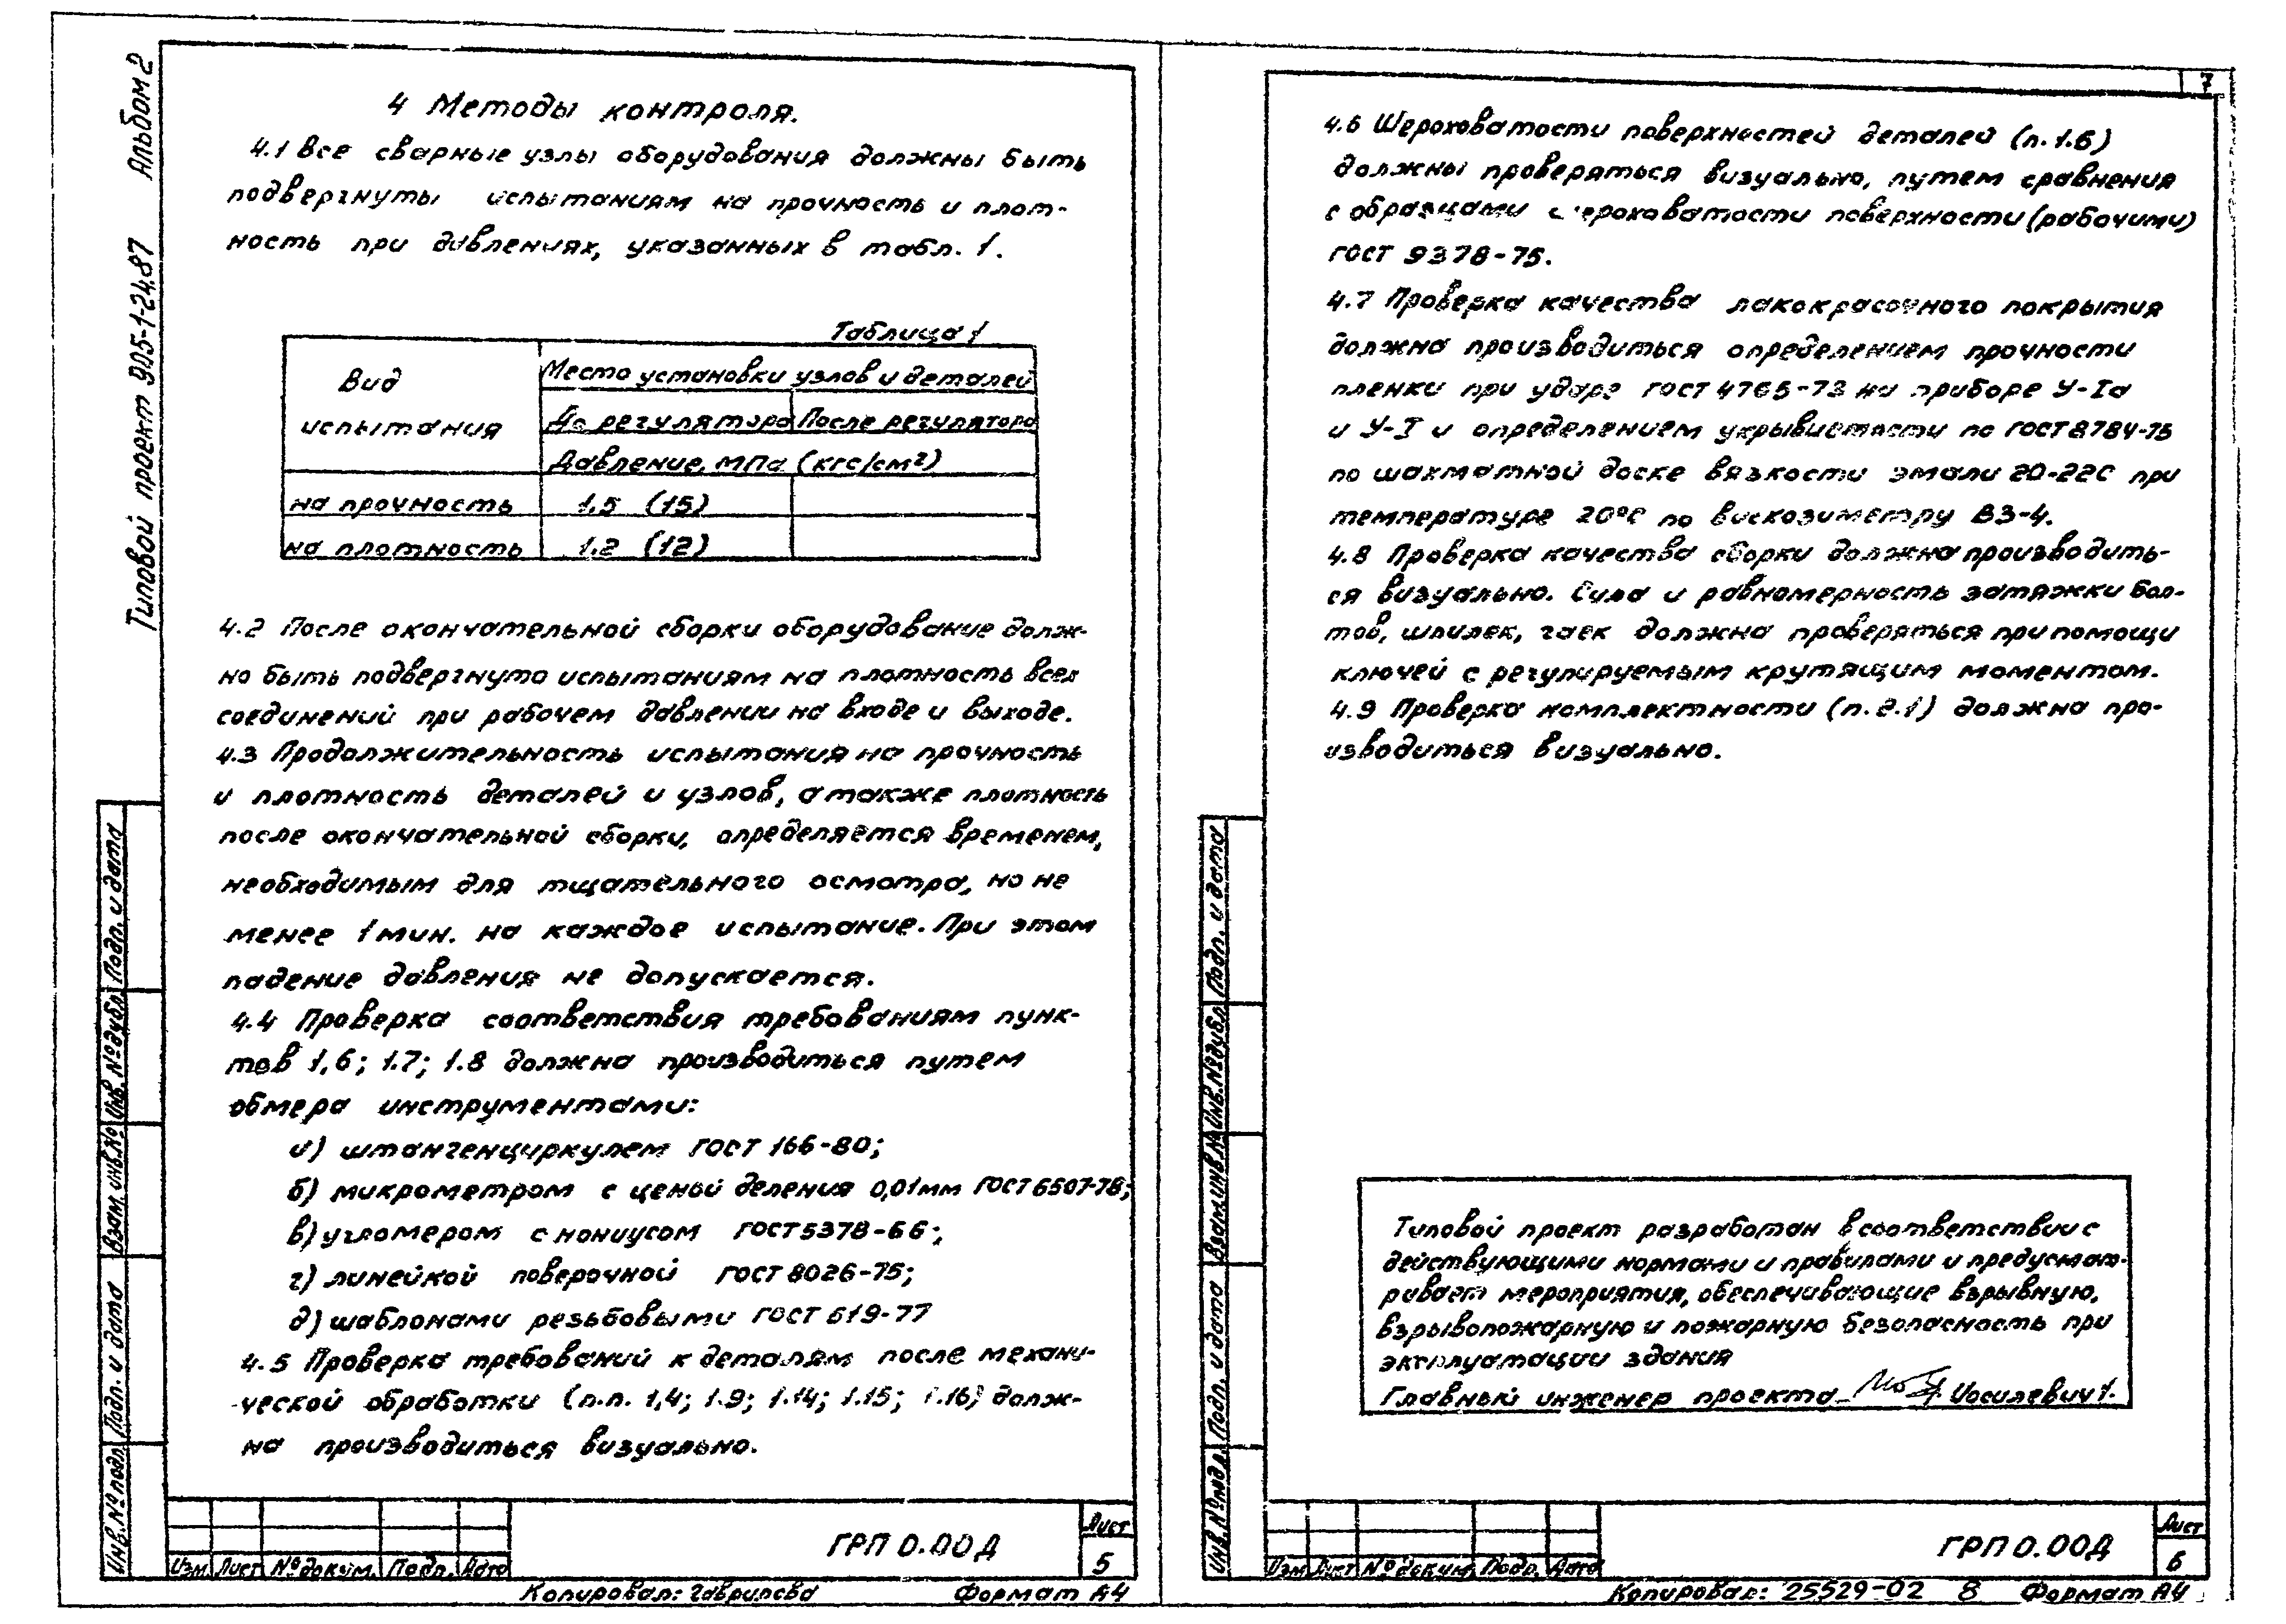 Типовой проект 905-1-24.87 Альбом 2
4 Методы контроля.
4.1 Все сварные узлы оборудования должны быть
подвергнуты испытаниям на прочность и плот-
ность при давлениях, указанных в табл. 1.
Таблица 1
Вид испытания
Место установки узлов и деталей
До регулятора После регулятора
Давление, МПа (кгс/см²)
на прочность 1.5 (15)
на плотность 1.2 (12)
4.2 После окончательной сборки оборудование долж-
но быть подвергнуто испытаниям на плотность всех
соединений при рабочем давлении на входе и выходе.
4.3 Продолжительность испытания на прочность
и плотность деталей и узлов, а также плотность
после окончательной сборки, определяется временем,
необходимым для тщательного осмотра, но не
менее 1 мин. на каждое испытание. При этом
падение давления не допускается.
4.4 Проверка соответствия требованиям пунк-
тов 1,6; 1.7; 1.8 должна производиться путем
обмера инструментами:
а) штангенциркулем ГОСТ 166-80;
б) микрометром с ценой деления 0,01мм ГОСТ 6507-78;
в) угломером с нониусом ГОСТ 5378-66;
г) линейкой поверочной ГОСТ 8026-75;
д) шаблонами резьбовыми ГОСТ 519-77
4.5 Проверка требований к деталям после механи-
ческой обработки (п.п. 1,4; 1.9; 1.14; 1.15; 1.16) долж-
на производиться визуально.
Инв.№подл. Подп. и дата Взам. инв.№ Инв.№дубл. Подп. и дата
Изм. Лист №докум. Подп. Дата
ГРП 0.00Д
Лист
5
Копировал: Гаврилова Формат А4
7
4.6 Шероховатости поверхностей деталей (п. 1.6)
должны проверяться визуально, путем сравнения
с образцами шероховатости поверхности (рабочими)
ГОСТ 9378-75.
4.7 Проверка качества лакокрасочного покрытия
должна производиться определением прочности
пленки при ударе ГОСТ 4765-73 на приборе У-Iа
и У-I и определением укрывистости по ГОСТ 8784-75
по шахматной доске вязкости эмали 20-22С при
температуре 20°С по вискозиметру ВЗ-4.
4.8 Проверка качества сборки должна производить-
ся визуально. Сила и равномерность затяжки бол-
тов, шпилек, гаек должна проверяться при помощи
ключей с регулируемым крутящим моментом.
4.9 Проверка комплектности (п. 2.1) должна про-
изводиться визуально.
Типовой проект разработан в соответствии с
действующими нормами и правилами и предусмат-
ривает мероприятия, обеспечивающие взрывную,
взрывопожарную и пожарную безопасность при
эксплуатации здания
Главный инженер проекта Иосилевич
Инв.№подл. Подп. и дата Взам.инв.№ Инв.№дубл. Подп. и дата
Изм. Лист №докум. Подп. Дата
ГРП 0.00Д
Лист
6
Копировал: 25529-02 8 Формат А4